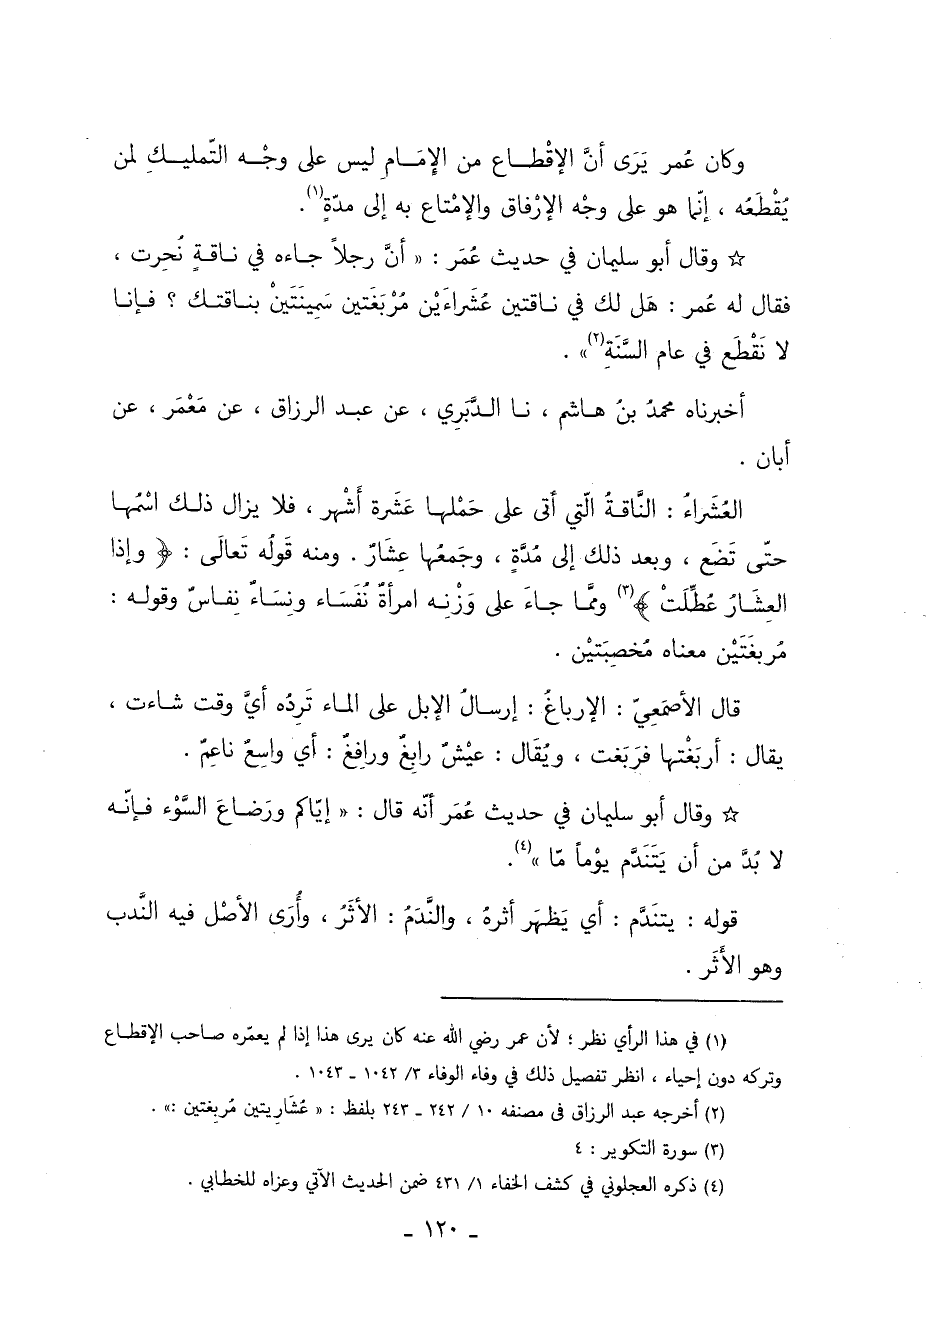 وكان عُمر يَرَى أنَّ الإقْطاع من الإمَام ليس على وجْه التّمليك لمن
يُقْطَعُه ، إنّما هو على وجْه الإرْفاق والإمْتاع به إلى مدّةٍ(١).
☆ وقال أبو سليمان في حديث عُمَر : « أنَّ رجلاً جاءه في ناقةٍ نُحِرت ،
فقال له عُمر : هَل لك في ناقتين عُشَراءَيْن مُرْبَغَتَين سَمِينَتَيْن بناقتك ؟ فإنا
لا نَقْطَع في عام السَّنَةِ(٢)» .
أخبرناه محمدُ بنُ هاشم ، نا الدَّبَري ، عن عبد الرزاق ، عن مَعْمَر ، عن
أبان .
العُشَراءُ : النَّاقةُ الّتي أتى على حَمْلها عَشَرة أشْهر ، فلا يزال ذلك اسْمُها
حتّى تَضَع ، وبعد ذلك إلى مُدَّةٍ ، وجَمعُها عِشَارٌ . ومنه قَولُه تَعالَى : ﴿ وإذا
العِشَارُ عُطِّلَتْ ﴾(٣) وممَّا جاءَ على وَزْنِه امرأةٌ نُفَسَاء ونِسَاءٌ نِفاسٌ وقوله :
مُربِغَتَيْن معناه مُخصِبَتَيْن .
قال الأصْمَعِيّ : الإرباغُ : إرسالُ الإبل على الماء تَردُه أيَّ وقت شاءت ،
يقال : أربَغْتها فَرَبَغت ، ويُقَال : عيْشٌ رابِغٌ ورافِغٌ : أي واسِعٌ ناعِمٌ .
☆ وقال أبو سليمان في حديث عُمَر أنّه قال : « إيّاكم ورَضاعَ السَّوْء فإنّه
لا بُدَّ من أن يَتَنَدَّم يوْماً مّا »(٤).
قوله : يتنَدَّم : أي يَظهَر أثرهُ ، والنَّدَمُ : الأثَرُ ، وأُرَى الأصْل فيه النَّدب
وهو الأَثَر .
(١) في هذا الرأي نظر ؛ لأن عمر رضي الله عنه كان يرى هذا إذا لم يعمّره صاحب الإقطاع
وتركه دون إحياء ، انظر تفصيل ذلك في وفاء الوفاء ٣/ ١٠٤٢ ـ ١٠٤٣ .
(٢) أخرجه عبد الرزاق في مصنفه ١٠ / ٢٤٢ ـ ٢٤٣ بلفظ : « عُشَاريتين مُربغتين :» .
(٣) سورة التكوير : ٤
(٤) ذكره العجلوني في كشف الخفاء ١/ ٤٣١ ضمن الحديث الآتي وعزاه للخطابي .
ـ ١٢٠ ـ